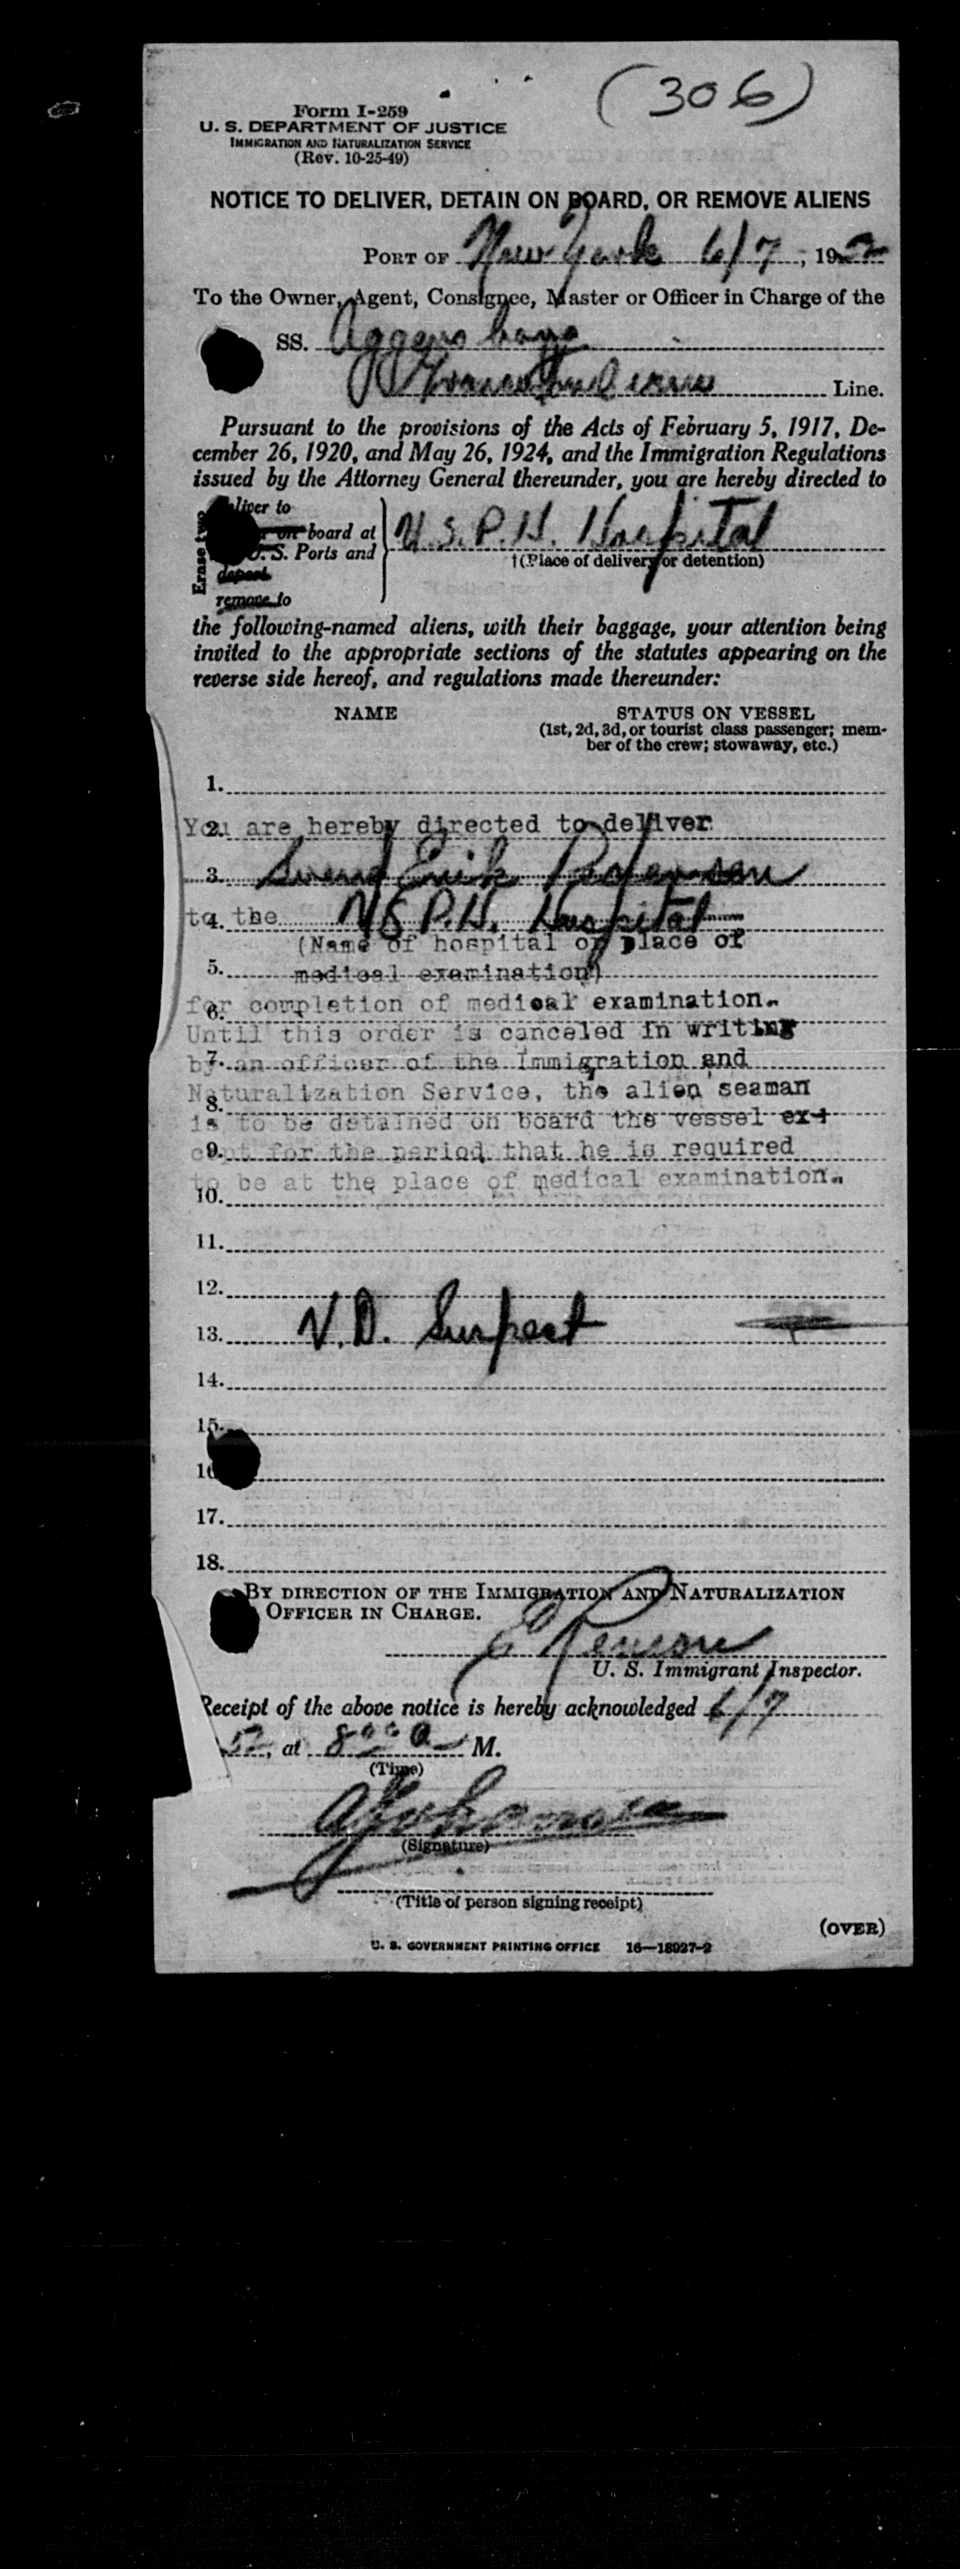 (306)
Form I-259
U. S. DEPARTMENT OF JUSTICE
IMMIGRATION AND NATURALIZATION SERVICE
(Rev. 10-25-49)
NOTICE TO DELIVER, DETAIN ON BOARD, OR REMOVE ALIENS
PORT OF New York 6/7, 1952
To the Owner, Agent, Consignee, Master or Officer in Charge of the
SS.
Line.
Pursuant to the provisions of the Acts of February 5, 1917, De-
cember 26, 1920, and May 26, 1924, and the Immigration Regulations
issued by the Attorney General thereunder, you are hereby directed to
Erase two
deliver to
on board at
U. S. Ports and
deport
remove to
U.S.P.H. Hospital
†(Place of delivery or detention)
the following-named aliens, with their baggage, your attention being
invited to the appropriate sections of the statutes appearing on the
reverse side hereof, and regulations made thereunder:
NAME STATUS ON VESSEL
(1st, 2d, 3d, or tourist class passenger; mem-
ber of the crew; stowaway, etc.)
1.
You are hereby directed to deliver
2.
3. Svend Erik Petersen
to the U S P.H. Hospital
4.
(Name of hospital or place of
5. medical examination)
for completion of medical examination.
6.
Until this order is canceled in writing
7. by an officer of the Immigration and
Naturalization Service, the alien seaman
8.
is to be detained on board the vessel ex-
9. cept for the period that he is required
to be at the place of medical examination.
10.
11.
12.
13. V.D. Suspect
14.
15.
16
17.
18.
BY DIRECTION OF THE IMMIGRATION AND NATURALIZATION
OFFICER IN CHARGE.
U. S. Immigrant Inspector.
Receipt of the above notice is hereby acknowledged 6/7
52, at 8 00 a M.
(Time)
(Signature)
(Title of person signing receipt)
(OVER)
U. S. GOVERNMENT PRINTING OFFICE 16—18927-2